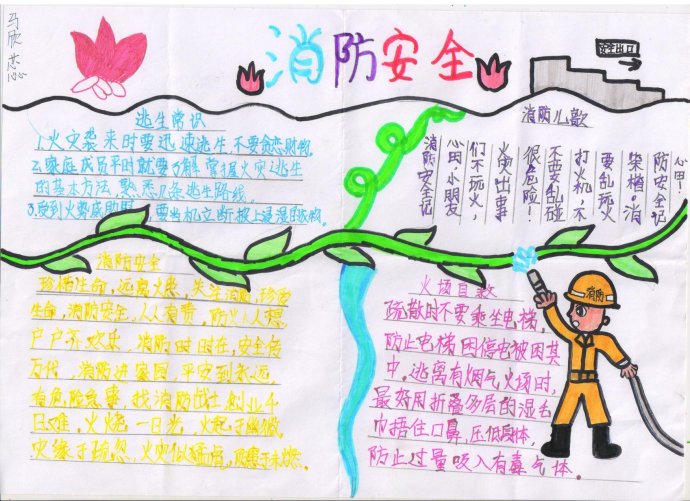 马欣蕊
消防安全
安全出口
逃生常识
1.火灾袭来时要迅速逃生,不要贪恋财物。
2.家庭成员平时就要了解掌握火灾逃生
的基本方法,熟悉几条逃生路线。
3.受到火势威胁时,要当机立断披上浸湿的衣物、
消防儿歌
心里!
防安全记
柴梢。消
要乱玩火
打火机,不
不要乱碰
很危险!
火突出事
们不玩火,
心田,小朋友
消防安全记
消防安全
珍惜生命,远离火患,关注消防,珍爱
生命,消防安全,人人有责,防火人人想,
户户齐欢乐,消防时时在,安全传
万代,消防进家园,平安到永远,
有危险急事,找消防战士,创业千
日难,火烧一日光,火起于幽微,
灾缘于疏忽,火灾似猛虎,隐患于未燃。
火场自救
疏散时不要乘坐电梯,
防止电梯因停电被困其
中。逃离有烟气火场时,
最好用折叠多层的湿毛
巾捂住口鼻,压低身体,
防止过量吸入有毒气体。
消防